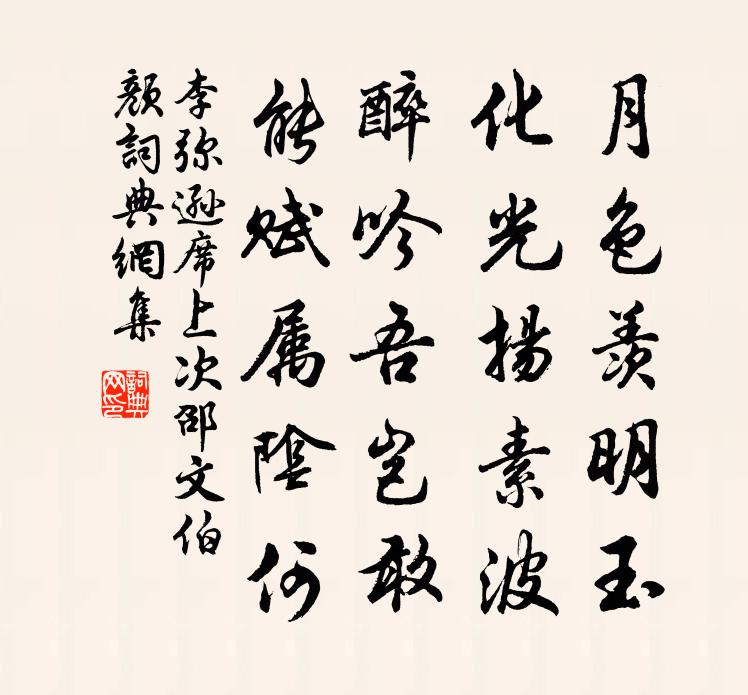 月色羨明玉
化光揚素波
醉吟吾豈敢
能賦属陰何
李弥遜席上次邵文伯
韻詞典網集
詞典網印